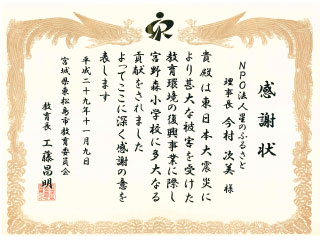 感謝状
NPO法人星のふるさと
理事長 今村 次美 様
貴殿は東日本大震災に
より甚大な被害を受けた
教育環境の復興事業に際し
宮野森小学校に多大なる
貢献をされました
よってここに深く感謝の意を
表します
平成二十九年十一月九日
宮城県東松島市教育委員会
教育長 工藤昌明